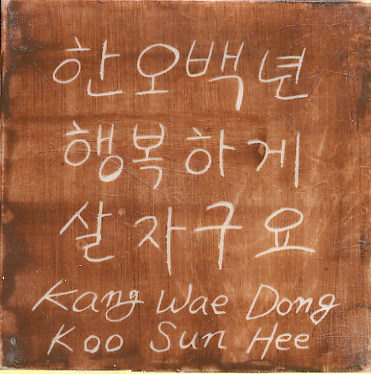 한오백년
행복하게
살자구요
Kang Wae Dong
Koo Sun Hee